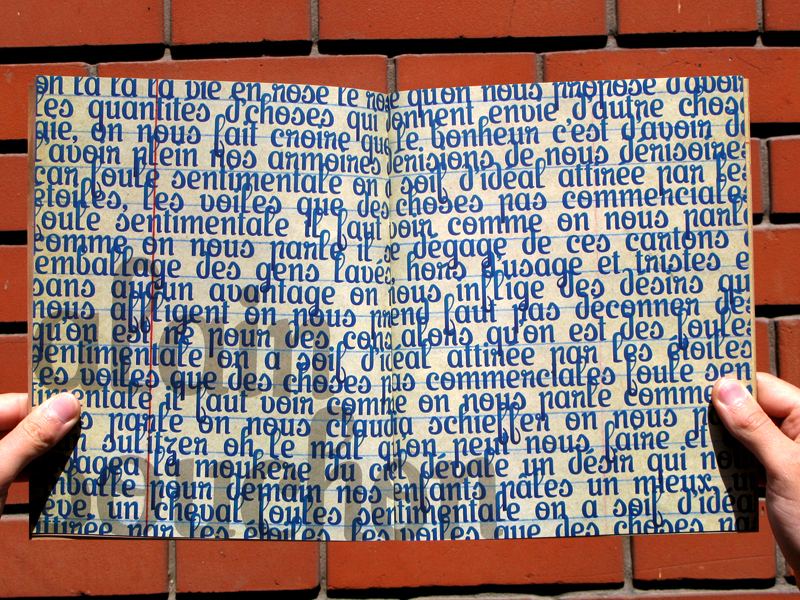 on la la la vie en rose le rose qu'on nous propose d'avoir
les quantités d'choses qui donnent envie d'autre chose
aie, on nous fait croire que le bonheur c'est d'avoir de
l'avoir plein nos armoires dérisions de nous dérisoires
car foule sentimentale on a soif d'idéal attirée par les
étoiles, les voiles que des choses pas commerciales
foule sentimentale il faut voir comme on nous parle
comme on nous parle il se dégage de ces cartons
emballage des gens lavés, hors d'usage et tristes e
sans aucun avantage on nous inflige des désirs qui
nous affligent on nous prend faut pas déconner dès
qu'on est né pour des cons alors qu'on est des foules
sentimentale on a soif d'idéal attirée par les étoiles
les voiles que des choses pas commerciales foule sen
timentale il faut voir comme on nous parle comme
us parle on nous claudia schieffer on nous
sulitzer oh le mal qu'on peut nous faire et
avagea la moukère du ciel dévale un désir qui nous
emballe pour demain nos enfants pâles un mieux, un
rêve, un cheval foules sentimentale on a soif d'idéa
attirée par les étoiles les voiles que des choses pa